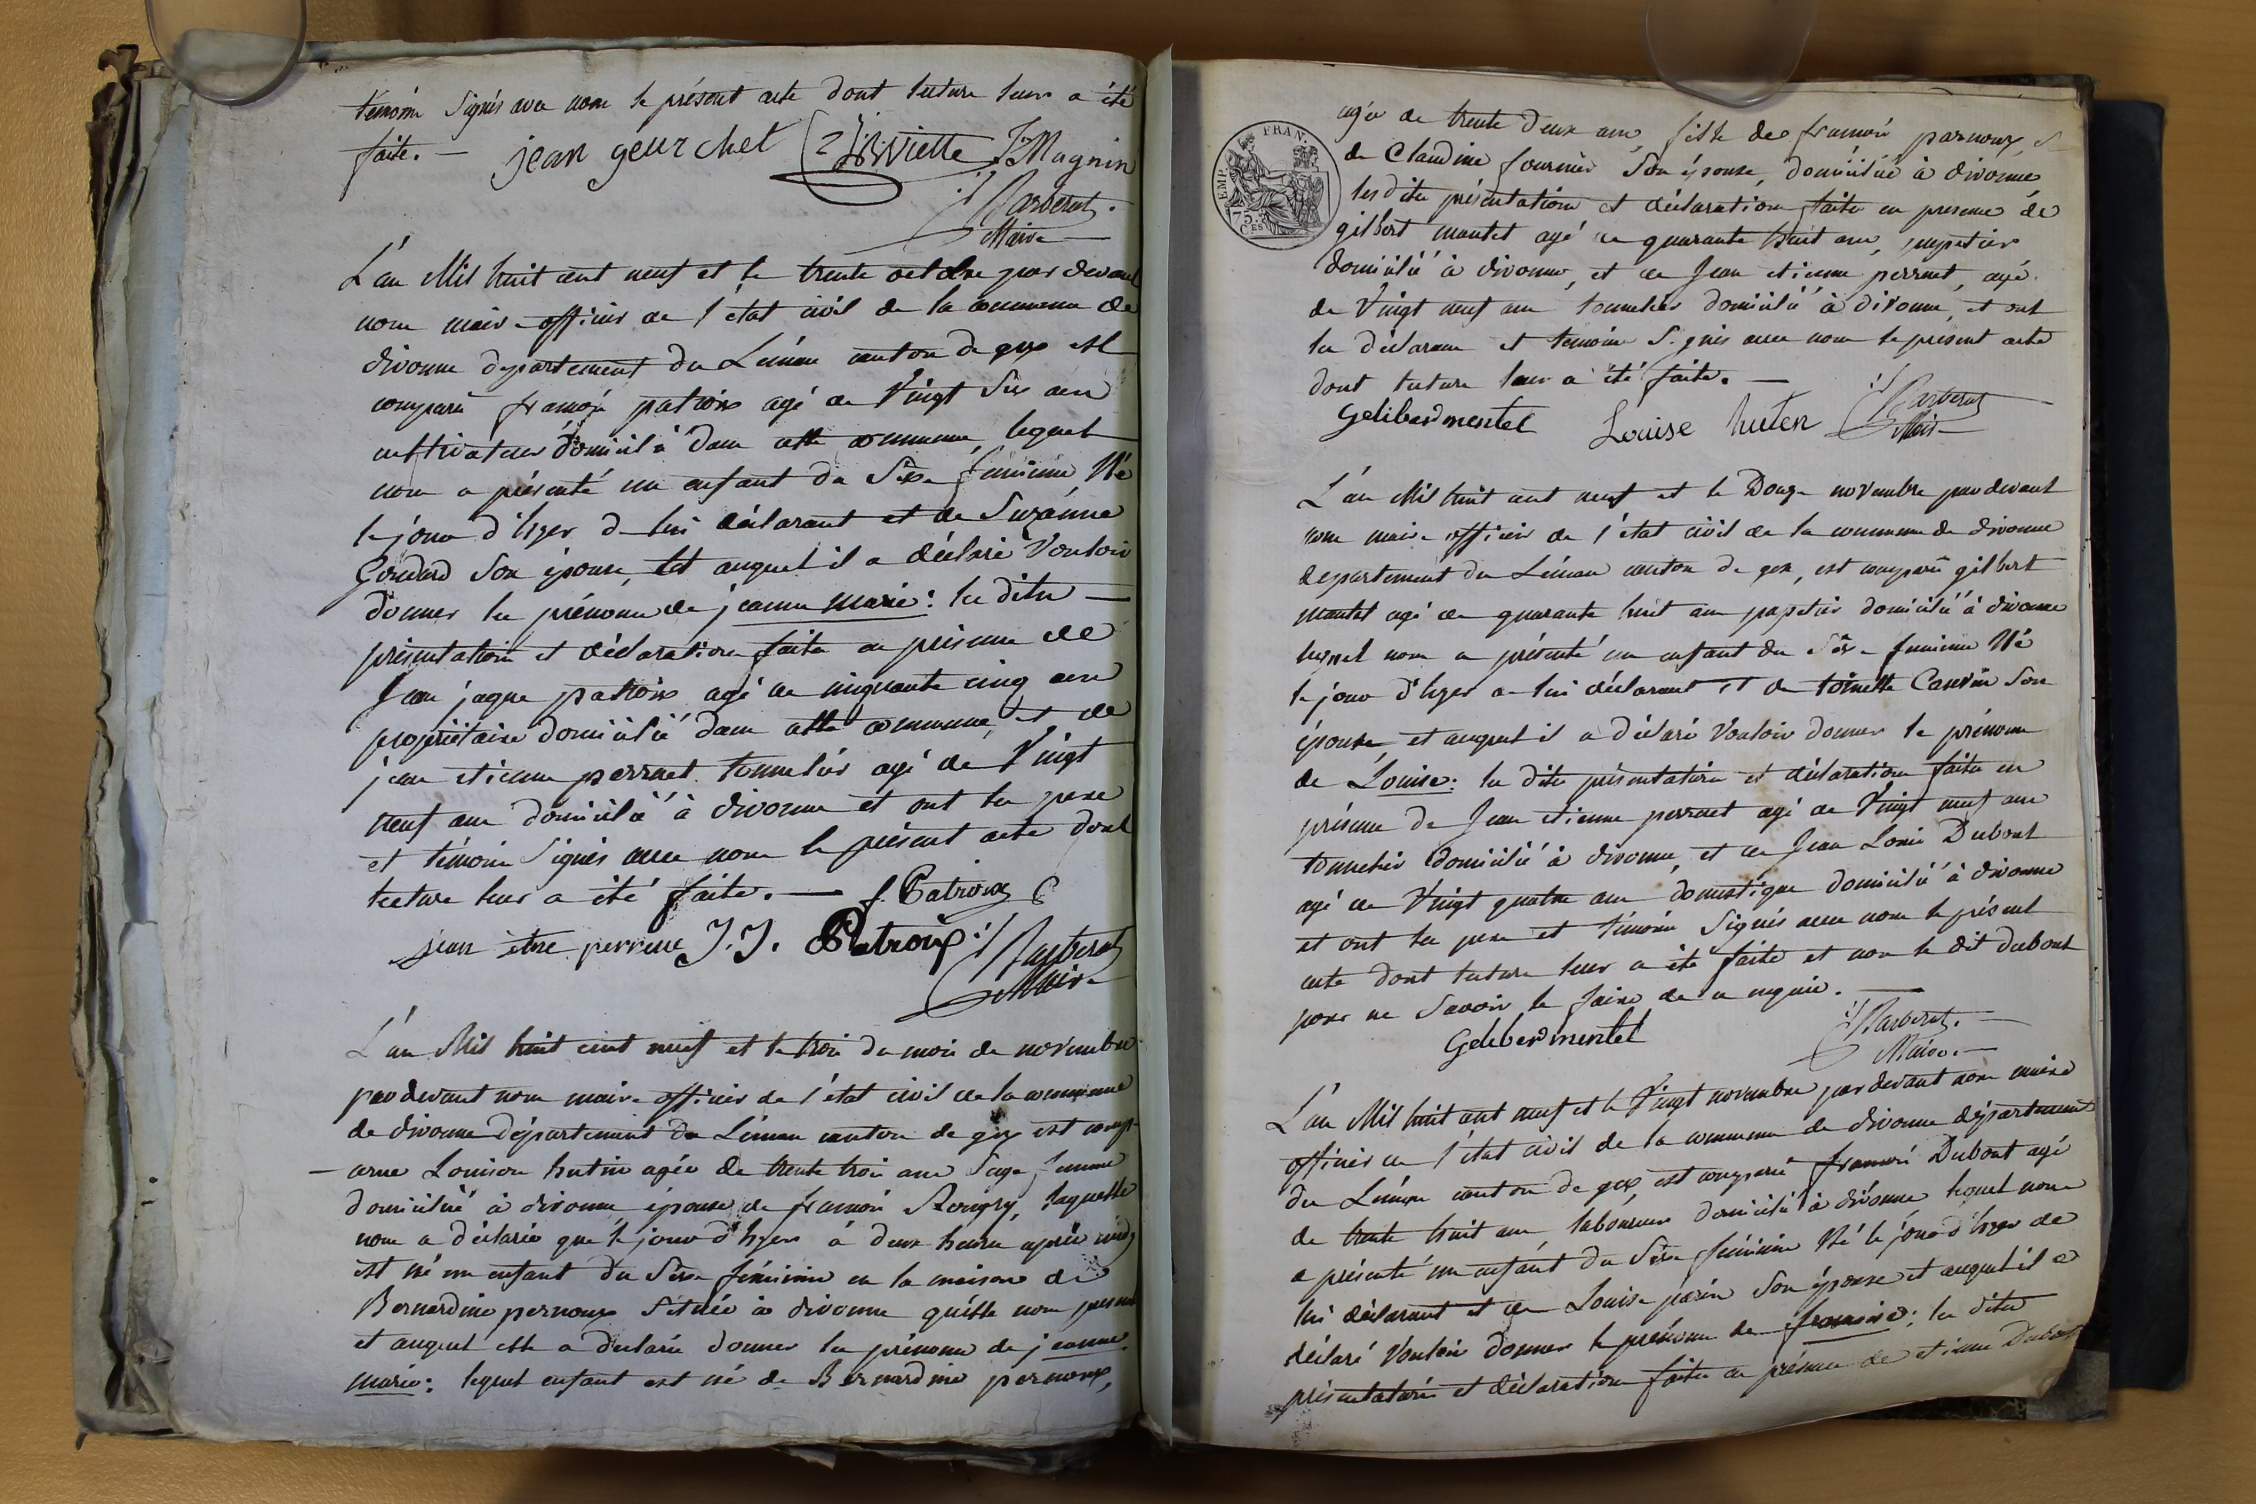 témoin Signés avec nous le présent acte dont lecture leur a été
faite. — jean geurchet Magnin
Maire
L'an Mil huit cent neuf et le trente octobre par devant
nous maire officier de l'état civil de la commune de
divonne département du Léman canton de gex est
comparu françois patroix agé de Vingt Six ans
cultivateur domicilié dans cette commune, lequel
nous a présenté un enfant du Sexe féminin Né
le jour d'hyer de lui déclarant et de Suzanne
Goudard Son épouse, et auquel il a déclaré Vouloir
donner les prénoms de jeanne marie: les dites
présentation et déclaration faites en présence de
Jean jaque patroix agé de cinquante cinq ans
propriétaire domicilié dans cette commune, et de
jean etienne perruet tonnelier agé de Vingt
neuf ans domicilié à divonne et ont les pere
et témoin Signés avec nous le présent acte dont
lecture leur a été faite. — f. Patroix
jean etne perruet J. J. Patroix
Maire
L'an Mil huit cent neuf et le trois du mois de novembre
par devant nous maire officier de l'état civil de la commune
de divonne département du Léman canton de gex est comp-
-arue Louison hutin agée de trente trois ans Sage femme
domiciliée à divonne épouse de françois Rougry, laquelle
nous a déclarée que le jour d'hyer à deux heures après midy
est né un enfant du Sexe féminin en la maison de
Bernardine pernoux Située à divonne qu'elle nous présente
et auquel elle a déclarée donner les prénoms de jeanne
marie: lequel enfant est né de Bernardine pernoux,
EMP. FRAN.
75 CES
agée de trente deux ans, fille de françois parnoux, &
de Claudine fournier Son épouse, domiciliée à divonne
les dites présentation et déclaration faites en presence de
gilbert mantet agé de quarante huit ans, papetier
domicilié à divonne, et de Jean etienne perruet, agé
de Vingt neuf ans tonnelier domicilié à divonne, et ont
les déclarans et témoins Signés avec nous le present acte
dont lecture leur a été faite. —
Geliberdmentel Louise huten
Maire
L'an Mil huit cent neuf et le Douze novembre par devant
nous maire officier de l'état civil de la commune de divonne
departement du Léman canton de gex, est comparu gilbert
mantet agé de quarante huit ans papetier domicilié à divonne
lequel nous a présenté un enfant du Sexe feminin Né
le jour d'hyer de lui déclarant et de toinette Son
épouse et auquel il a déclaré Vouloir donner le prénom
de Louise: les dites présentation et déclaration faites en
présence de Jean etienne perruet agé de Vingt neuf ans
tonnelier domicilié à divonne, et de Jean Louis Dubout
agé de Vingt quatre ans domestique domicilié à divonne
et ont les pere et témoin Signés avec nous le présent
acte dont lecture leur a été faite et non le dit dubout
pour ne Savoir le faire de ce requis. —
Geliberdmentel
Maire. —
L'an Mil huit cent neuf et le Vingt novembre par devant nous maire
officier de l'état civil de la commune de divonne département
du Léman canton de gex, est comparu françois Dubout agé
de trente huit ans, laboureur domicilié à divonne, lequel nous
a présenté un enfant du Sexe féminin Né le jour d'hyer de
lui déclarant et de Louise Son épouse et auquel il a
déclaré Vouloir donner le prénom de françoise: les dites
présentation et déclaration faites en présence de etienne Dubout